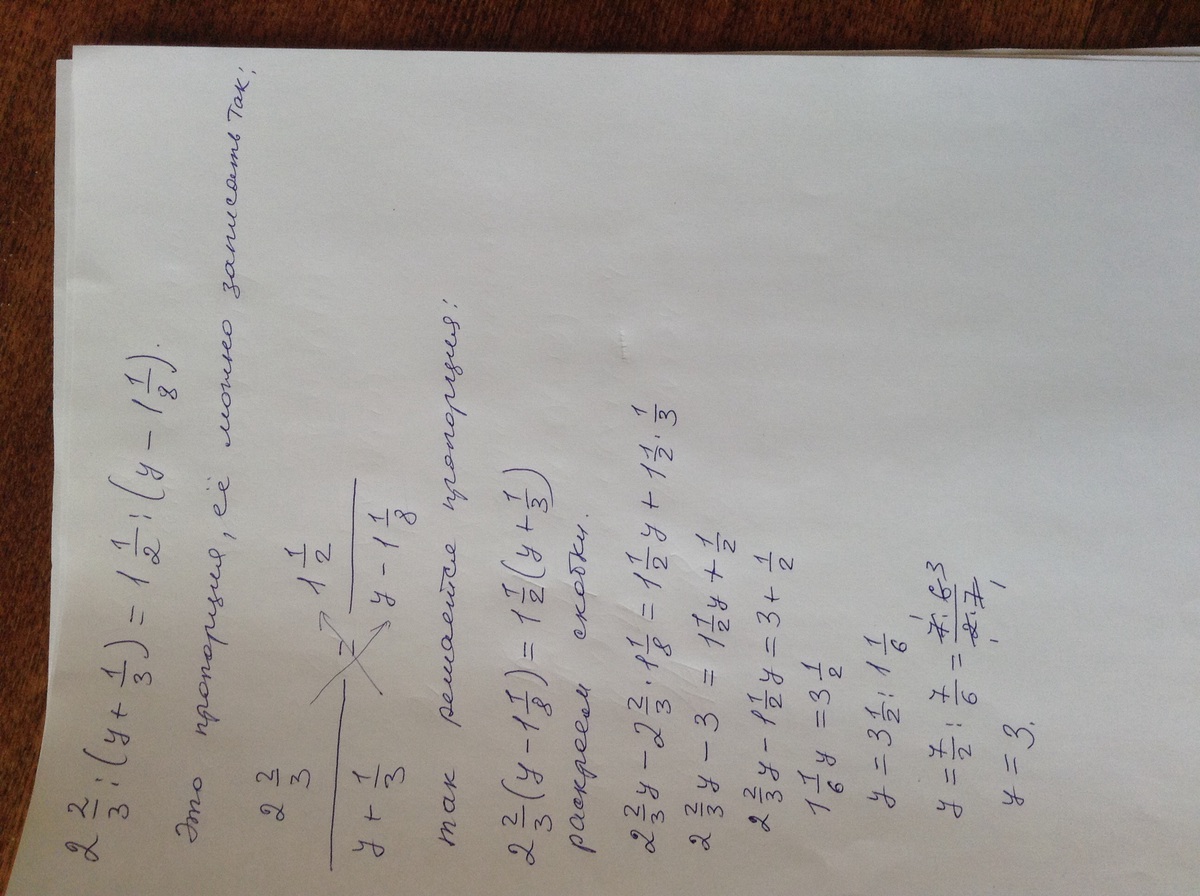 2 2/3 : (y + 1/3) = 1 1/2 : (y - 1 1/8).
Это пропорция, её можно записать так:
2 2/3 / (y + 1/3) = 1 1/2 / (y - 1 1/8)
так решается пропорция:
2 2/3 (y - 1 1/8) = 1 1/2 (y + 1/3)
раскроем скобки.
2 2/3 y - 2 2/3 · 1 1/8 = 1 1/2 y + 1 1/2 · 1/3
2 2/3 y - 3 = 1 1/2 y + 1/2
2 2/3 y - 1 1/2 y = 3 + 1/2
1 1/6 y = 3 1/2
y = 3 1/2 : 1 1/6
y = 7/2 : 7/6 = 7 · 6 3 / 2 · 7
y = 3.